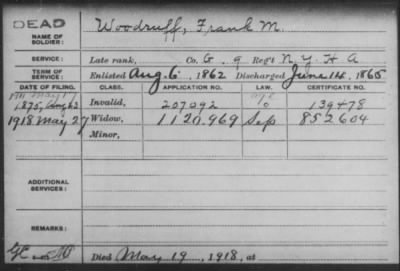 DEAD
NAME OF SOLDIER: Woodruff, Frank M.
SERVICE: Late rank, Co. G. 9 Reg't N.Y. H A
TERM OF SERVICE: Enlisted Aug. 6, 1862 Discharged June 14, 1865
DATE OF FILING. CLASS. APPLICATION NO. LAW. CERTIFICATE NO.
1875, Aug Invalid, 207092 139478
1918 May 27 Widow, 1120,969 Sep 852604
Minor,
ADDITIONAL SERVICES:
REMARKS:
Died May 19, 1918, at